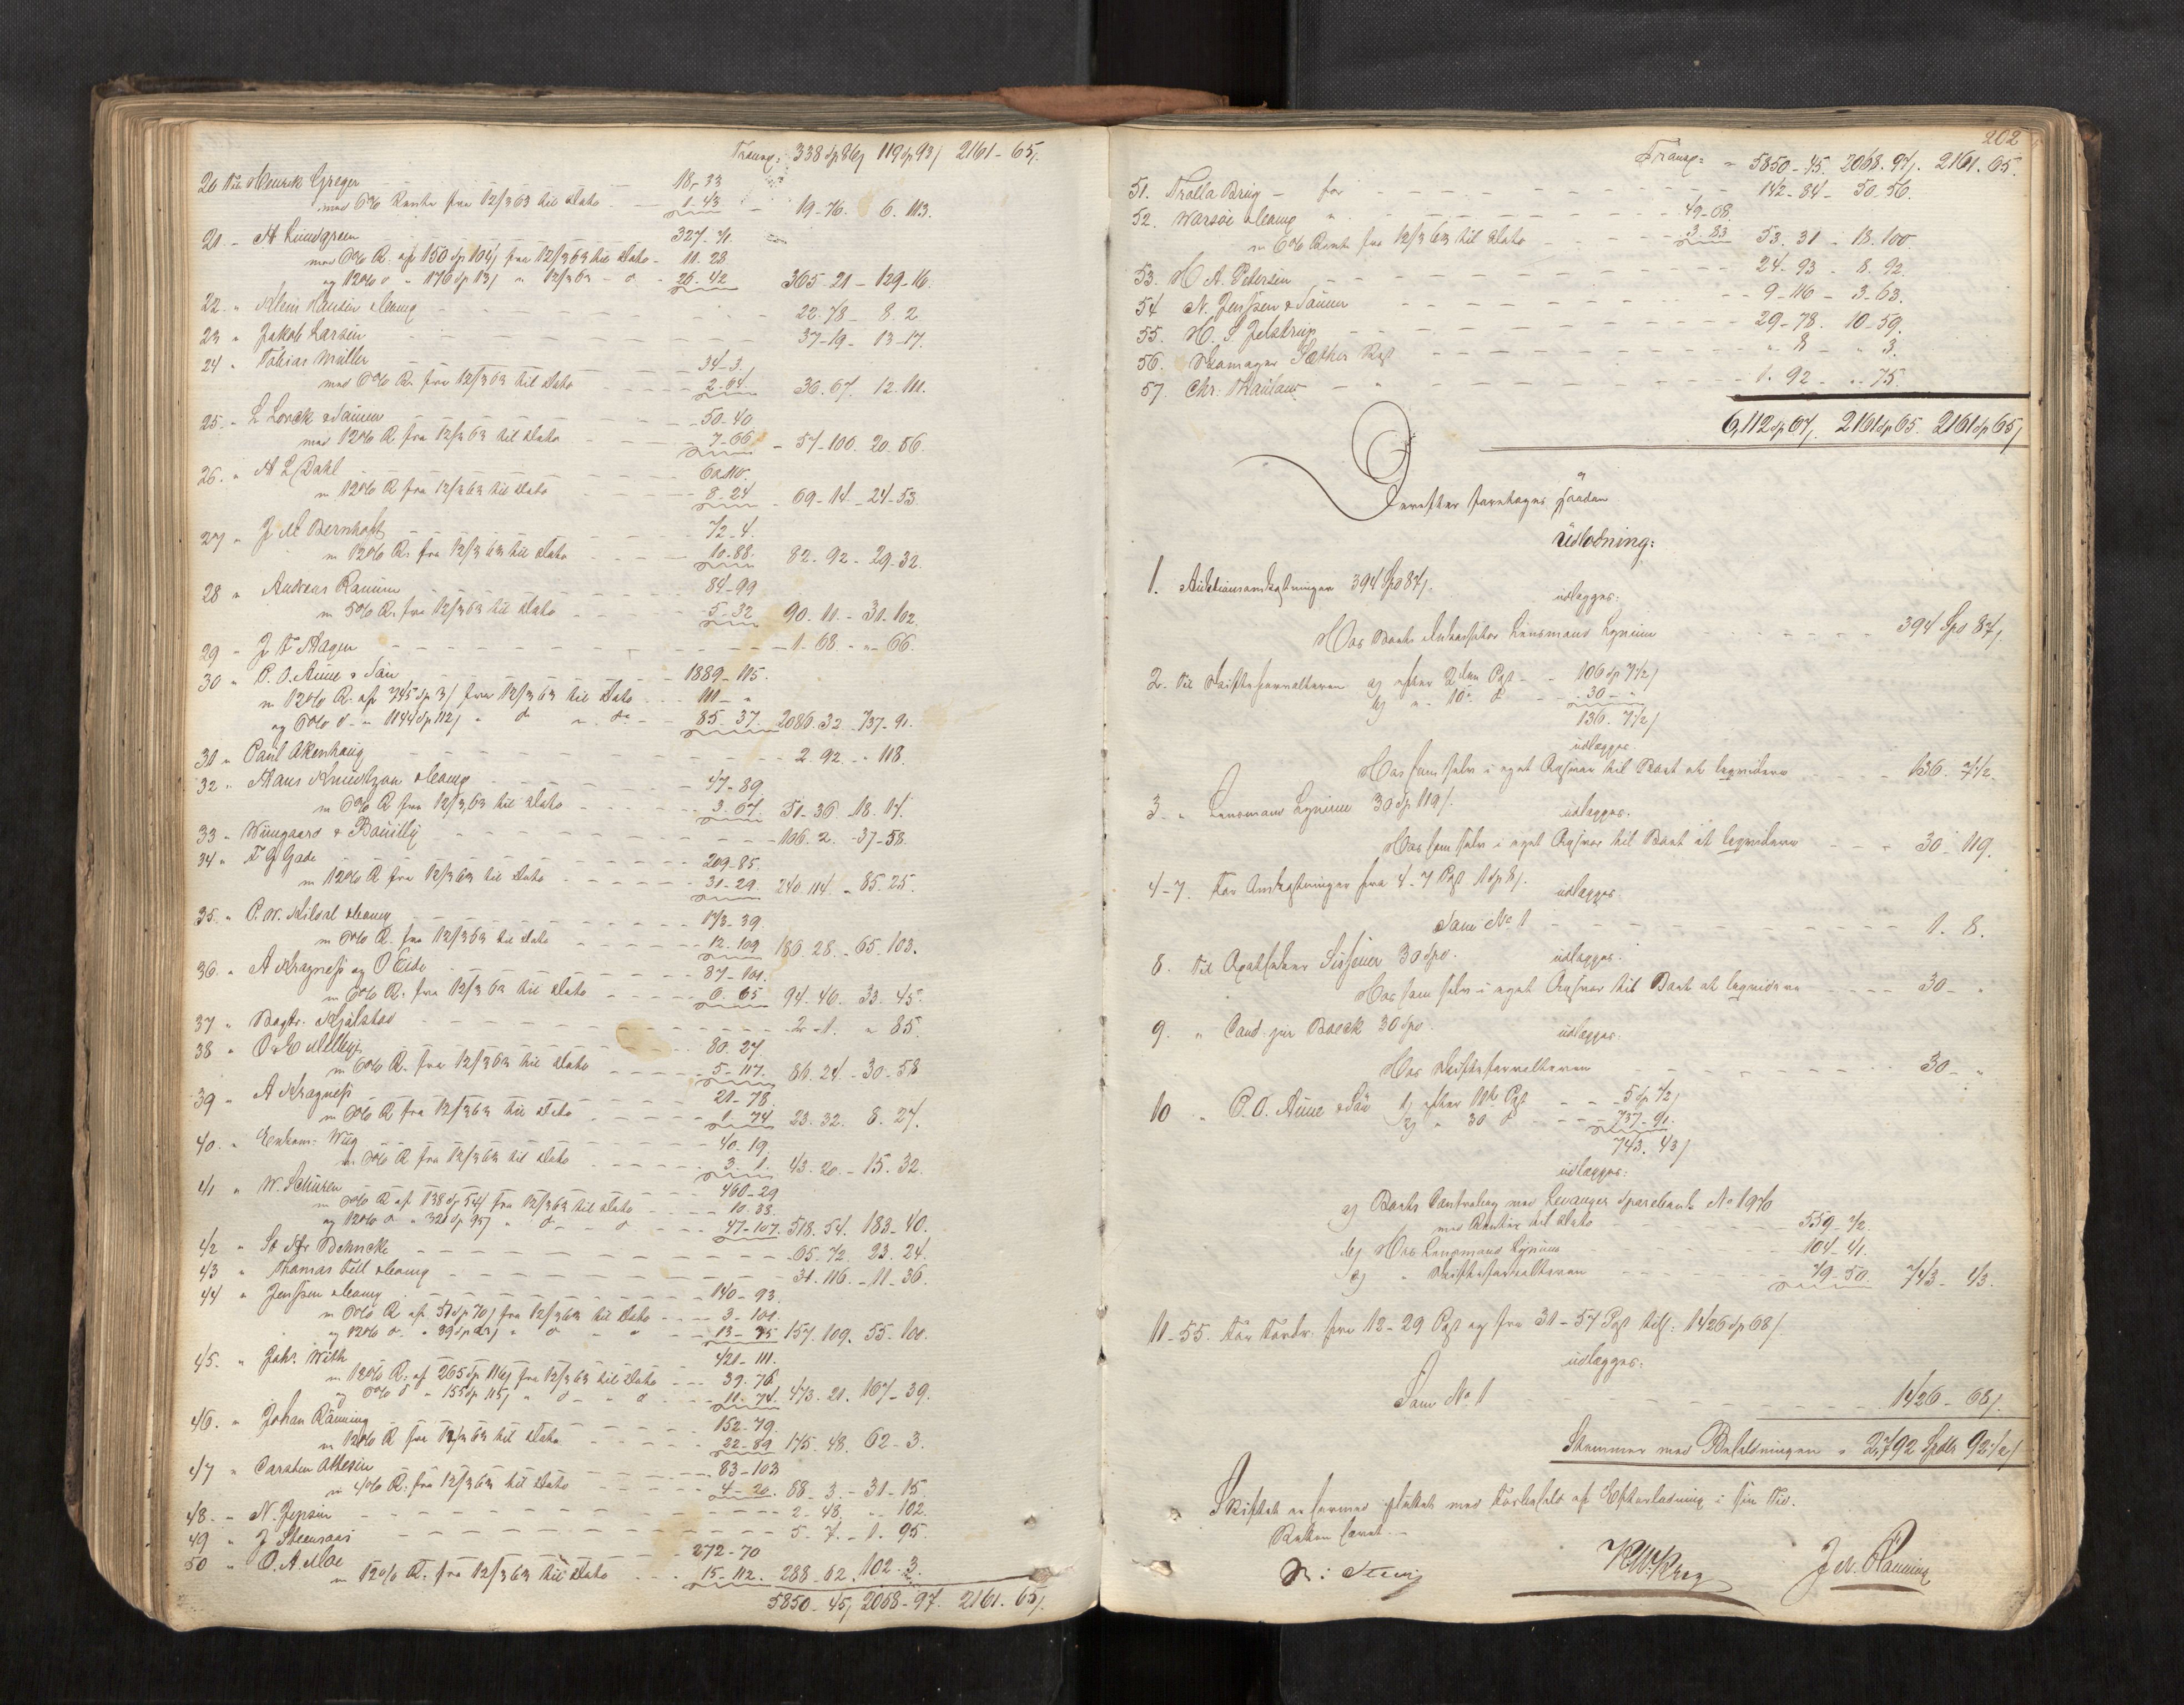 Transp: 338 Sp 86 ß 119 Sp 93 ß 2161 - 65 ß.
20 Til Henrik Greger 18 - 33
med 6% Rente fra 12/3 63 til Dato 1. 43 19 - 76. 6. 113.
21 - A Lundgreen 327 - 71.
med 6% R. af 150 Sp 104 ß fra 12/3 63 til Dato 11. 28
og 12% d° 176 Sp 13 ß " 12/3 63 - d° 26 - 42 365 - 21 - 129 - 16.
22. " Klein Hansen & Comp 22. 78 - 8. 2
23 " Jakob Larsen 37 - 19 - 13 - 17.
24 " Tobias Müller 34 - 3.
med 6% R. fra 12/3 63 til Dato 2 - 64. 36. 67. 12. 111.
25 - L Lorck & Sønner 50. 40
med 12% R fra 12/3 63 til Dato 7 - 66 57 - 106. 20. 56.
26. " A L Dahl 60. 110.
m 12% R fra 12/3 63 til Dato 8. 24 69 - 14 - 24 - 53.
27 " J M Bernhoft 72 - 4.
m 12% R. fra 12/3 63 til Dato 10 - 88. 82. 92 - 29. 32.
28 " Andreas Ranum 84 - 99
m 5% R. fra 12/3 63 til Dato 5 - 32 90 - 11 - 31. 102.
29 " J F Hagen 1 - 68. - " 66.
30 " P. O. Aune & Søn 1889 - 115.
m 12% R. af 745 Sp 3 ß fra 12/3 63 til Dato 111 - "
og 6% d° " 1144 Sp 112 ß " d° " d° 85. 37. 2086. 32. 737 - 91.
31 " Paul Okenhaug 2. 92. - " 118.
32 " Hans Knudtzon & Comp 47 - 89
m 6% R fra 12/3 63 til Dato 3. 67. 51 - 36. 18. 17.
33 " Wingaard & Bouilly 106. 2. - 37 - 58.
34 " F G Gade 209 - 85.
m 12% R fra 12/3 63 til Dato 31 - 29. 240. 114. - 85. 25.
35. " P. W. Kildal & Comp 173 - 39
m 6% R. fra 12/3 63 til Dato 12. 109 186. 28. - 65. 103.
36. " A Kragness og O Eide 87 - 101.
m 6% R. fra 12/3 63 til Dato 6. 65 94. 46. 33. 45.
37 " Bagtr. Kjølstad 2 - 1. " 85.
38 " O & E Melbye 80. 27.
m 6% R. fra 12/3 63 til Dato 5 - 117. 86. 24. - 30 - 58
39 " A Kragness 21 - 78.
m 6% R. fra 12/3 63 til Dato 1 - 74 23. 32. 8. 27.
40. " Enkem: Wiig 40. 19.
m 6% R fra 12/3 63 til Dato 3. 1. 43. 20. - 15. 32.
41 " W. Schüren 460 - 29
m 6% R af 138 Sp 54 ß fra 12/3 63 til Dato 10. 38.
og 12% d° " 321 Sp 95 ß " d° - d° 47 - 107. 518. 54. 183 - 40.
42 " 65. 72. 23. 24.
43 " Thomas Fell & Comp 31. 116. - 11 - 36.
44 " Jenssen & Comp 140 - 93.
m 6% R af 51 Sp 70 ß fra 12/3 63 til Dato 3 - 101.
og 12% d° " 89 Sp 23 ß " d° 13 - 35 157. 109. 55. 101.
45. " Johs With 421 - 111.
m 12% R. af 265 Sp 116 ß fra 12/3 63 til Dato 39. 76
og 6% d° " 155 Sp 115 ß " d° - " d° 11 - 74. 473. 21. 167 - 39.
46. " Johan Rønning 152 - 79.
m 12% R fra 12/3 63 til Dato 22 - 89 175. 48. 62 - 3.
47 " Carsten Olbesin 83 - 103
m 4% R. fra 12/3 63 til Dato 4 - 20. 88 - 3. - 31 - 15.
48. - N. Jepsen 2 - 48. " 102.
49 " J Steensaas 5. 7. - 1. 95.
50 " O. A Moe 272 - 70
m 12% R. fra 12/3 63 til Dato 15 - 112. 288 - 62. 102 - 3.
5850 - 45 ß 2068 - 97. 2161. 65 ß.
202
Transp: " 5850 - 45. 2068. 97 ß. 2161. 65.
51. Trolla Brug - for 142 - 84 - 50. 56.
52. Warsöe & Comp " 49 - 68.
m 6% Rente fra 12/3 63 til Dato 3. 83 53. 31 - 18. 100.
53. H A. Petersen 24. 93 - 8. 92.
54 N. Jenssen & Sønner 9 - 116 - 3 - 63.
55. H. S. Jelstrup 29 - 78. 10 - 59.
56. Skomager Sæther Rest " 8 - " 3.
57. Chr. Thaulow " 1. 92 - " 75.
6,112 Sp 67 ß. 2161 Sp 65. 2161 Sp 65 ß
Derefter foretages saadan
Udlodning:
1. Auktionsomkostninger 394 Spd 87 ß. udlægges:
Hos Boets Inkassator Lensmand Lynum 394 Spd 87 ß.
2. Til Skifteforvalteren a) efter 2den Post 106 Sp 7 1/2 ß
b) " 10de d° 30 - "
136. 7 1/2 ß
udlægges.
Hos ham selv i eget Ansvar til Boet at liqvidere 136. 7 1/2.
3. " Lensmand Lynum 30 Sp 119 ß. udlægges.
Hos ham selv i eget Ansvar til Boet at liqvidere 30 - 119.
4 - 7. For Omkostninger fra 4 - 7 Post 1 Sp 8 ß. udlægges
Som No 1 1. 8.
8. Til Apotheker Sissener 30 Spd. udlægges.
Hos ham selv i eget Ansvar til Boet at liqvidere 30 - "
9. " Cand. jur Boeck 30 Spd. udlægges.
Hos Skifteforvalteren 30 - "
10 " P. O. Aune & Søn 1) efter 11te Post 5 Sp 72 ß
2) " 30 d° 737 - 91.
743. 43 ß
udlægges:
a) Boets Contrabog med Levanger Sparebank No 1970
med Renter til Dato 559 - 72.
b) Hos Lensmand Lynum 104 - 41.
c) " Skifteforvalteren 79 - 50 743 - 43.
11 - 55. For Fordr: fra 12 - 29 Post og fra 31 - 57 Post tils: 1426 Sp 68 ß
udlægges:
Som No 1 1426 - 68 ß.
Stemmer med Beholdningen = 2,792 Spdlr 92 1/2 ß
Skiftet er hermed sluttet med Forbehold af Efterlodning i sin Tid.
Retten hævet. -